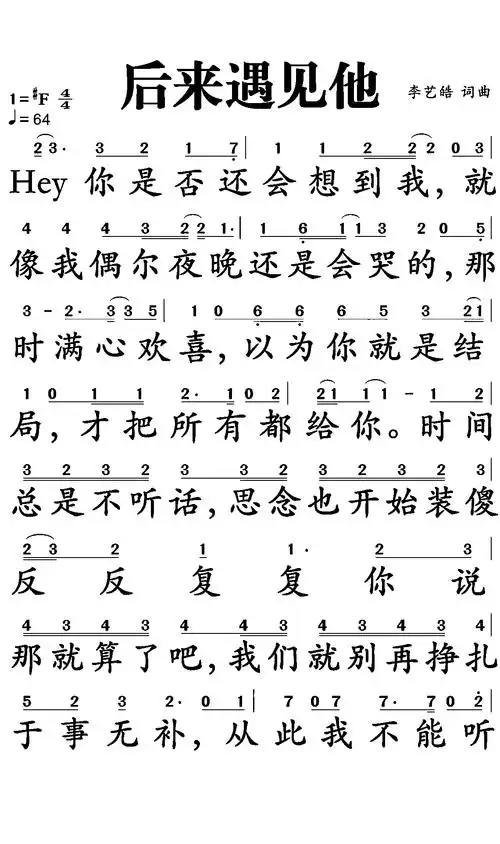 后来遇见他
李艺皓 词曲
1=#F 4/4
♩=64
2 3· 3 2 1 7 | 1 1 2 2 2 0 3 |
Hey 你是否还会想到我，就
4 4 4 3 2 2 1· | 1 6 1 1 3 2 0 5 |
像我偶尔夜晚还是会哭的，那
3 - 2· 3 3 5 | 1 0 6 6 6 5 3 2 1 |
时满心欢喜，以为你就是结
1 0 1 1 2· 1 0 2 | 2 1 1 1 - 1 2 |
局，才把所有都给你。时间
3 2 3 2 3 3 2 3 2 3 2 3 |
总是不听话，思念也开始装傻
2 3 2 1 1· 2 3 |
反反复复你说
4 3 4 3 4 3 4 3 4 3 4 3 4 |
那就算了吧，我们就别再挣扎
5 2 3 2· 0 1 | 7 0 7 7· 7 0 2 |
于事无补，从此我不能听